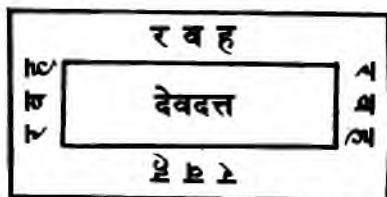 र व ह
र व ह
देवदत्त
र व ह
र व ह